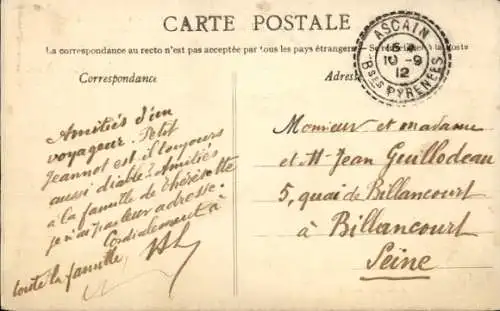 CARTE POSTALE
La correspondance au recto n'est pas acceptée par tous les pays étrangers Se renseigner à la Poste
Correspondance
Adresse
ASCAIN
10-9
12
Bses PYRENEES
Amitiés d'un
voyageur. Petit
Jeannot est-il toujours
aussi diable? Amitiés
à la famille de Thérésette
je n'ai pas leur adresse.
Cordialement à
toute la famille,
Monsieur et madame
et Mr Jean Guillodeau
5, quai de Billancourt
à Billancourt
Seine